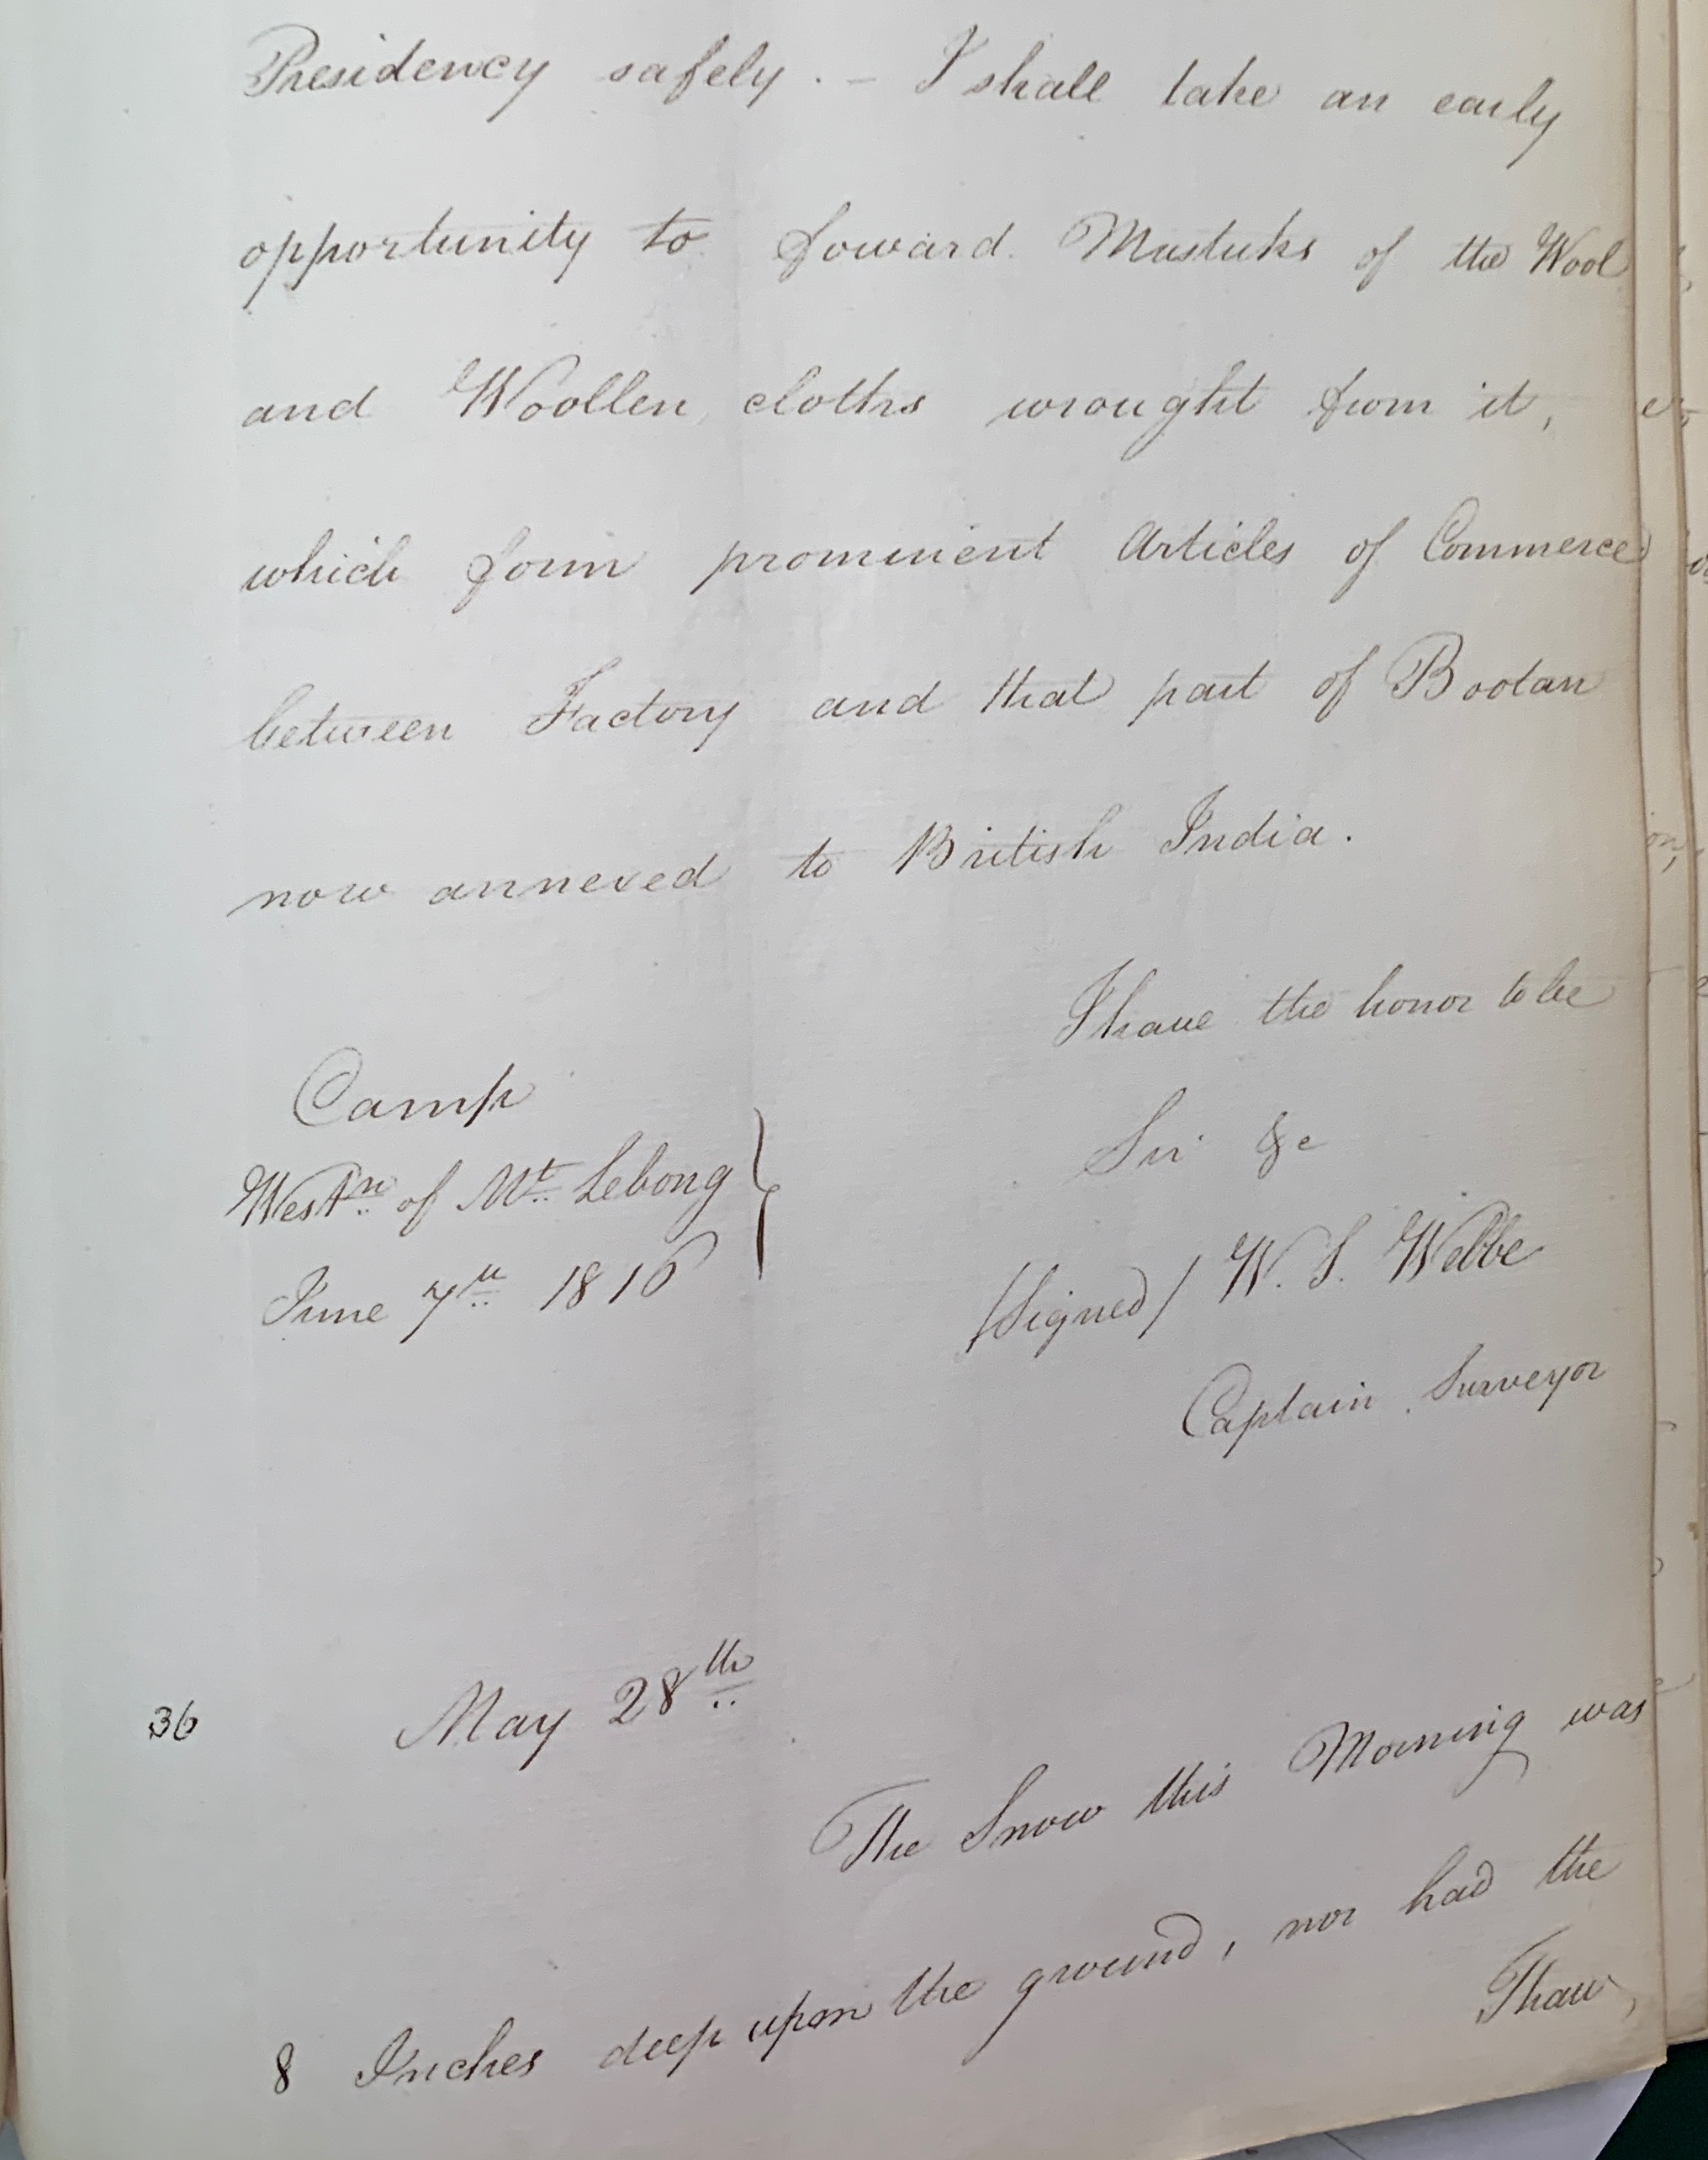 Presidency safely. — I shall take an early
opportunity to foward Mustuks of the Wool
and Woollen cloths wrought from it,
which form prominent Articles of Commerce
between Factory and that part of Bootan
now annexed to British India.
I have the honor to be
Sir &c
Camp
West.n of Mt. Lebong
June 7th 1816
(Signed) W. S. Webbe
Captain Surveyor
36
May 28th
The Snow this Morning was
8 Inches deep upon the ground, nor had the
Thaw